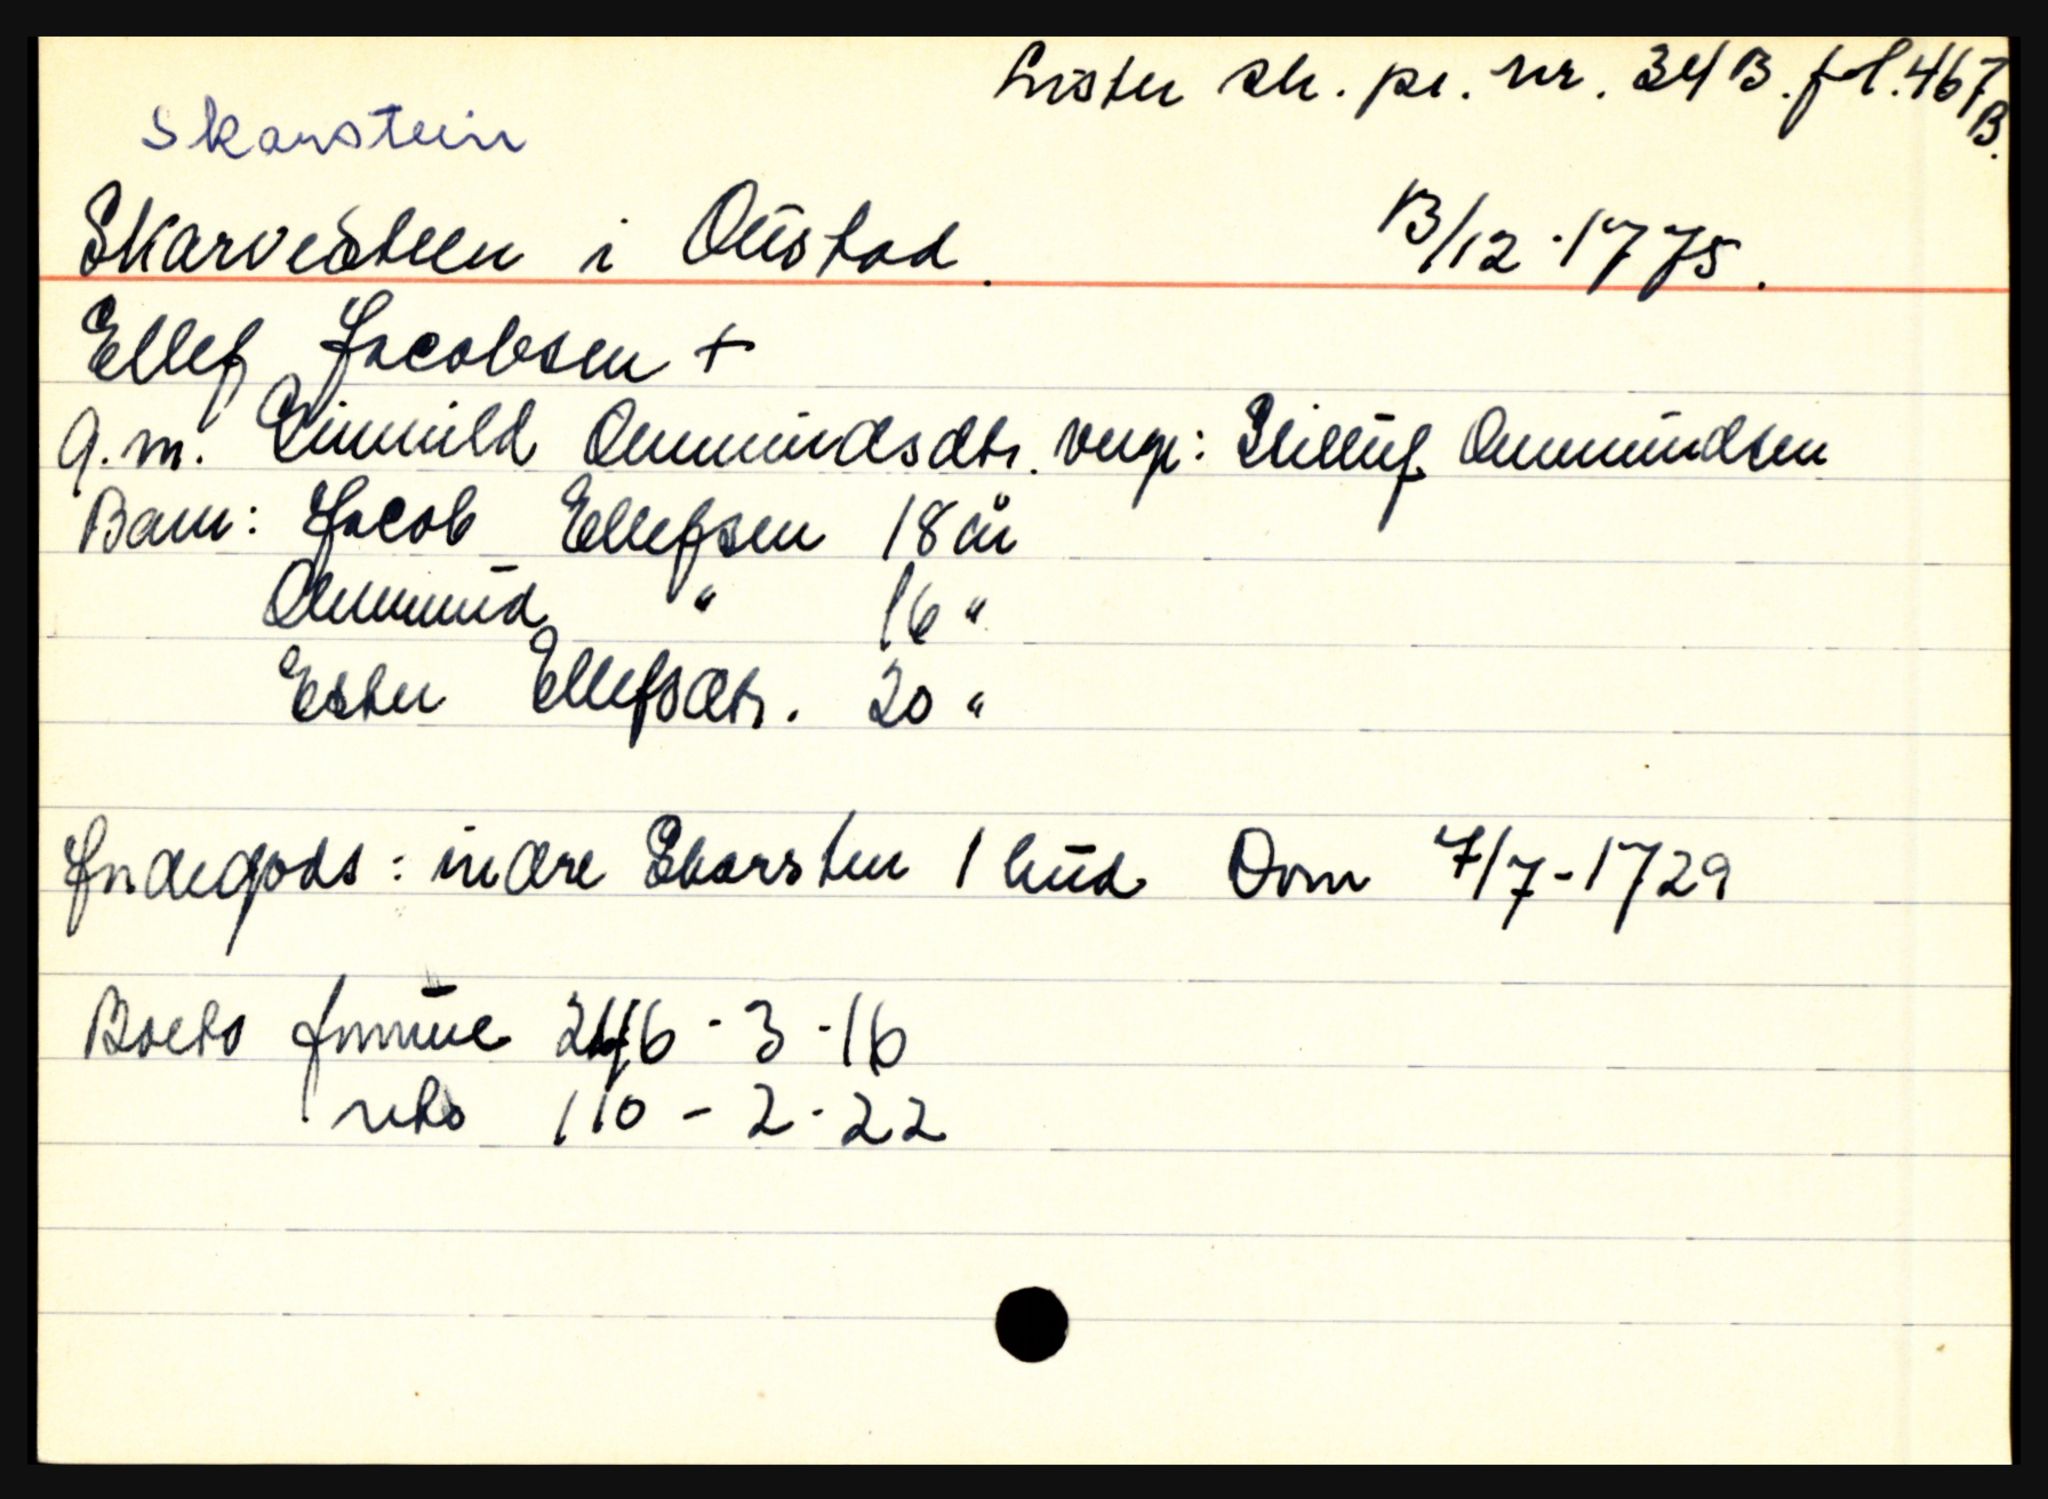 Lister sk. pr. nr. 34 B. fol. 467 B.
Skarstein
Skarvesteen i Oustad. 13/12-1775.
Ellef Jacobsen +
g.m. Gunnild Ommundsdtr. verge: Ommundsen
Barn: Jacob Ellefsen 18 år
Ommund " 16 "
Ester Ellefsdtr. 20 "
Jndegods: indre Skarsten 1 hud Dom 7/7-1729
Boets formue 246-3-16
neto 110-2-22